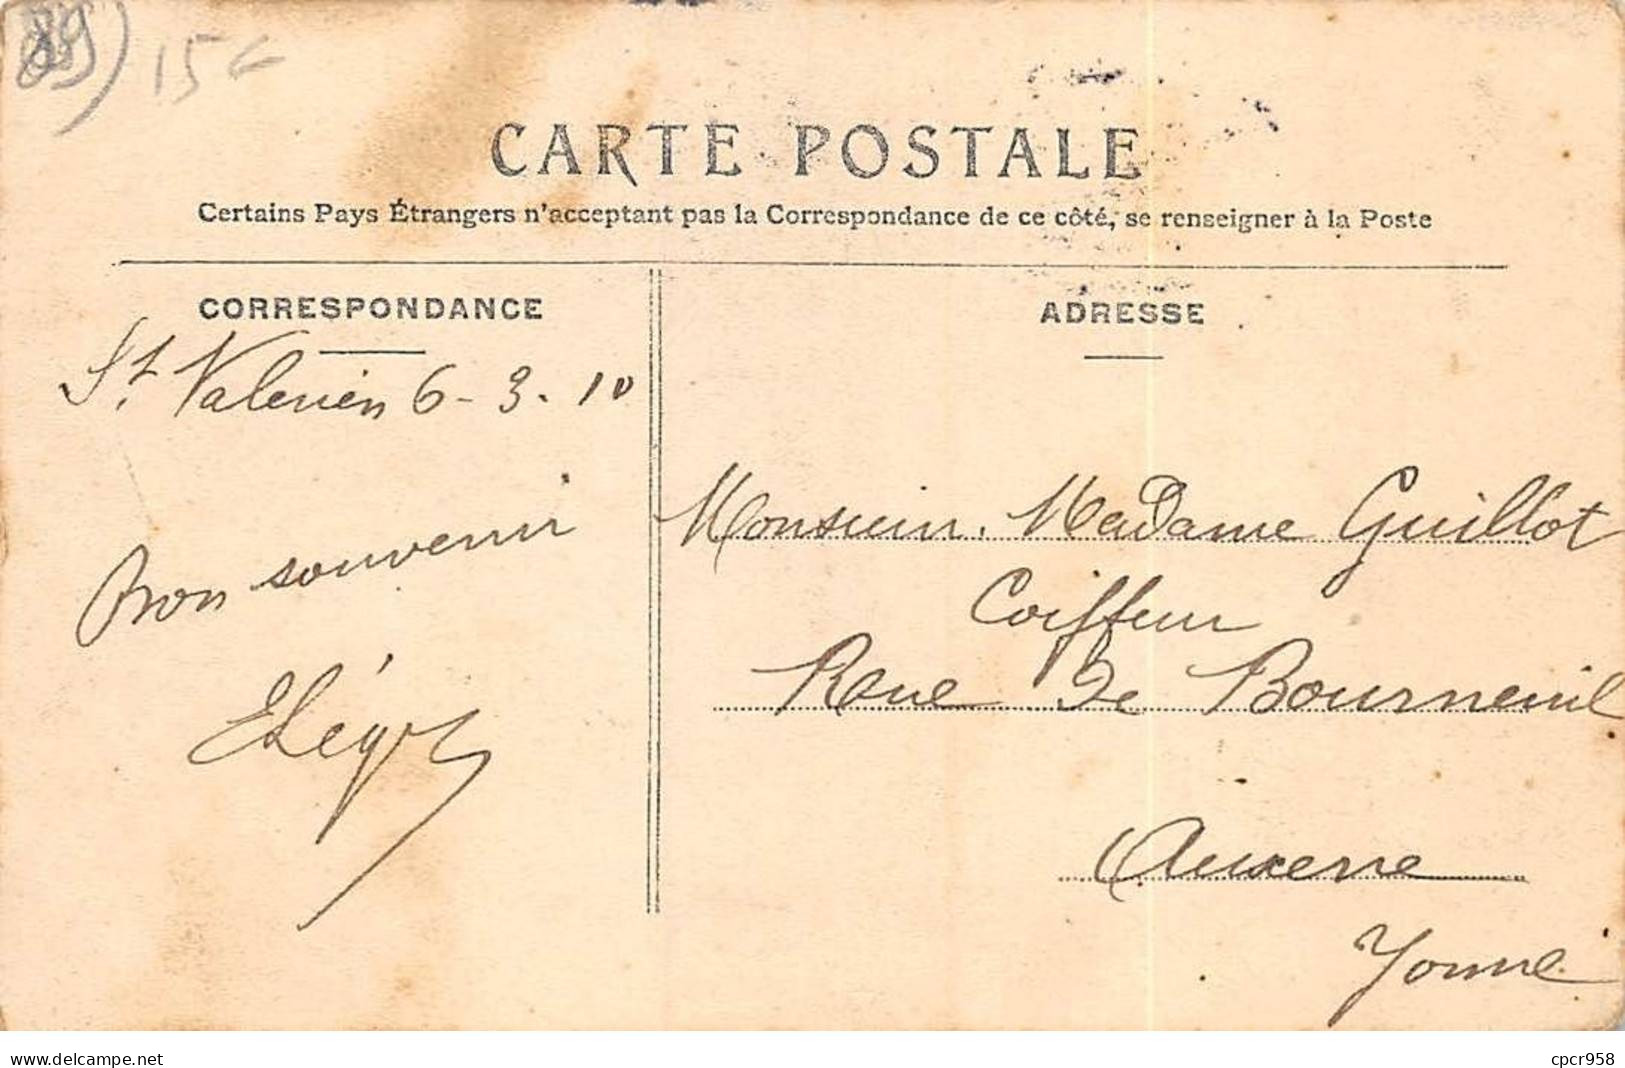 89) 15€
CARTE POSTALE
Certains Pays Étrangers n'acceptant pas la Correspondance de ce côté, se renseigner à la Poste
CORRESPONDANCE
St Valerien 6-3-10
Bon souvenir
ADRESSE
Monsieur. Madame Guillot
Coiffeur
Rue de Bourneuil
Auxerre
Yonne
delcampe.net
cpcr958